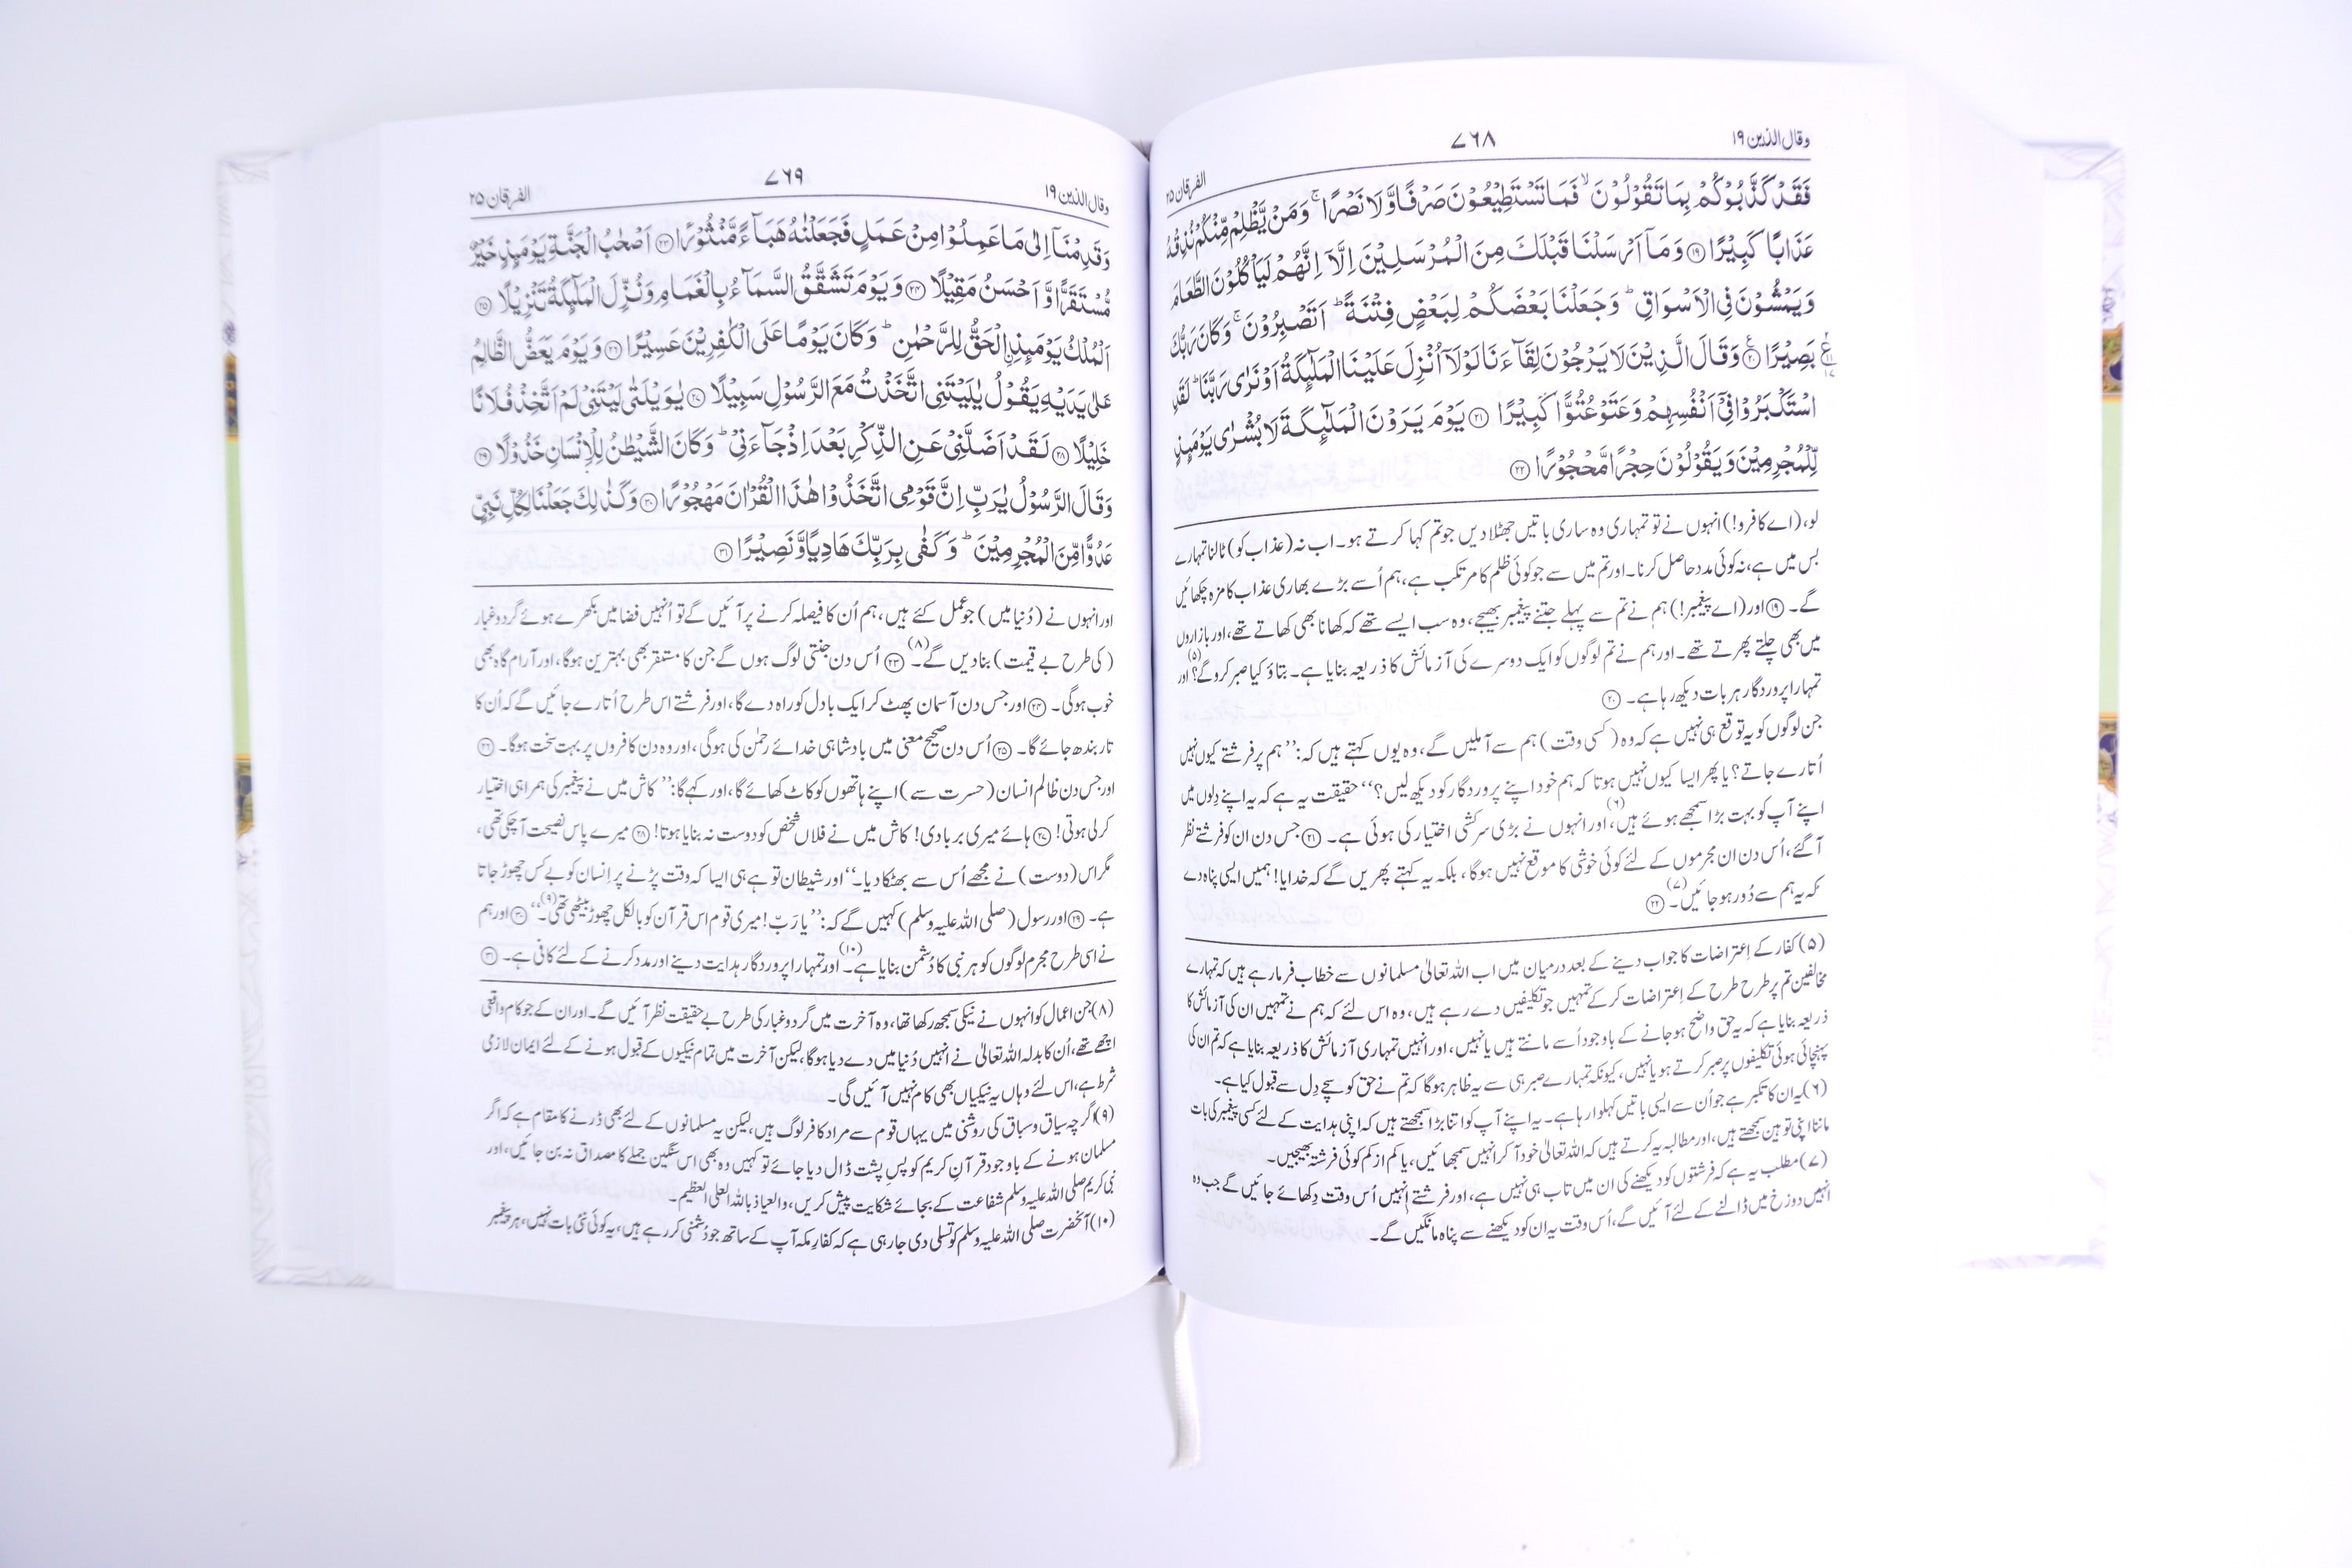 وقال الذین ۱۹
۷۶۸
الفرقان ۲۵
فَقَدْ كَذَّبُوْكُمْ بِمَا تَقُوْلُوْنَ ۙ فَمَا تَسْتَطِيْعُوْنَ صَرْفًا وَّلَا نَصْرًا ۚ وَمَنْ يَّظْلِمْ مِّنْكُمْ نُذِقْهُ
عَذَابًا كَبِيْرًا ⑲ وَمَآ اَرْسَلْنَا قَبْلَكَ مِنَ الْمُرْسَلِيْنَ اِلَّآ اِنَّهُمْ لَيَاْكُلُوْنَ الطَّعَامَ
وَيَمْشُوْنَ فِى الْاَسْوَاقِ ؕ وَجَعَلْنَا بَعْضَكُمْ لِبَعْضٍ فِتْنَةً ؕ اَتَصْبِرُوْنَ ۚ وَكَانَ رَبُّكَ
بَصِيْرًا ⑳ وَقَالَ الَّذِيْنَ لَا يَرْجُوْنَ لِقَآءَنَا لَوْلَآ اُنْزِلَ عَلَيْنَا الْمَلٰٓئِكَةُ اَوْ نَرٰى رَبَّنَا ؕ لَقَدِ
اسْتَكْبَرُوْا فِىْٓ اَنْفُسِهِمْ وَعَتَوْ عُتُوًّا كَبِيْرًا ㉑ يَوْمَ يَرَوْنَ الْمَلٰٓئِكَةَ لَا بُشْرٰى يَوْمَئِذٍ
لِّلْمُجْرِمِيْنَ وَيَقُوْلُوْنَ حِجْرًا مَّحْجُوْرًا ㉒
لو، (اے کافرو!) انہوں نے تو تمہاری وہ ساری باتیں جھٹلا دیں جو تم کہا کرتے ہو۔ اب نہ (عذاب کو) ٹالنا تمہارے
بس میں ہے، نہ کوئی مدد حاصل کرنا۔ اور تم میں سے جو کوئی ظلم کا مرتکب ہے، ہم اُسے بڑے بھاری عذاب کا مزہ چکھائیں
گے۔ ⑲ اور (اے پیغمبر!) ہم نے تم سے پہلے جتنے پیغمبر بھیجے، وہ سب ایسے تھے کہ کھانا بھی کھاتے تھے، اور بازاروں
میں بھی چلتے پھرتے تھے۔ اور ہم نے تم لوگوں کو ایک دوسرے کی آزمائش کا ذریعہ بنایا ہے۔ بتاؤ کیا صبر کرو گے؟(۵) اور
تمہارا پروردگار ہر بات دیکھ رہا ہے۔ ⑳
جن لوگوں کو یہ توقع ہی نہیں ہے کہ وہ (کسی وقت) ہم سے آملیں گے، وہ یوں کہتے ہیں کہ: ’’ہم پر فرشتے کیوں نہیں
اُتارے جاتے؟ یا پھر ایسا کیوں نہیں ہوتا کہ ہم خود اپنے پروردگار کو دیکھ لیں؟‘‘ حقیقت یہ ہے کہ یہ اپنے دِلوں میں
اپنے آپ کو بہت بڑا سمجھے ہوئے ہیں،(۶) اور انہوں نے بڑی سرکشی اختیار کی ہوئی ہے۔ ㉑ جس دن ان کو فرشتے نظر
آگئے، اُس دن ان مجرموں کے لئے کوئی خوشی کا موقع نہیں ہوگا، بلکہ یہ کہتے پھریں گے کہ خدایا! ہمیں ایسی پناہ دے
کہ یہ ہم سے دُور ہو جائیں۔(۷) ㉒
(۵) کفار کے اِعتراضات کا جواب دینے کے بعد درمیان میں اب اللہ تعالیٰ مسلمانوں سے خطاب فرما رہے ہیں کہ تمہارے
مخالفین تم پر طرح طرح کے اِعتراضات کر کے تمہیں جو تکلیفیں دے رہے ہیں، وہ اس لئے کہ ہم نے تمہیں ان کی آزمائش کا
ذریعہ بنایا ہے کہ یہ حق واضح ہو جانے کے باوجود اُسے مانتے ہیں یا نہیں، اور انہیں تمہاری آزمائش کا ذریعہ بنایا ہے کہ تم ان کی
پہنچائی ہوئی تکلیفوں پر صبر کرتے ہو یا نہیں، کیونکہ تمہارے صبر ہی سے یہ ظاہر ہوگا کہ تم نے حق کو سچے دِل سے قبول کیا ہے۔
(۶) یہ ان کا تکبر ہے جو اُن سے ایسی باتیں کہلوا رہا ہے۔ یہ اپنے آپ کو اتنا بڑا سمجھتے ہیں کہ اپنی ہدایت کے لئے کسی پیغمبر کی بات
ماننا اپنی توہین سمجھتے ہیں، اور مطالبہ یہ کرتے ہیں کہ اللہ تعالیٰ خود آکر انہیں سمجھائیں، یا کم از کم کوئی فرشتہ بھیجیں۔
(۷) مطلب یہ ہے کہ فرشتوں کو دیکھنے کی ان میں تاب ہی نہیں ہے، اور فرشتے اِنہیں اُس وقت دِکھائے جائیں گے جب وہ
انہیں دوزخ میں ڈالنے کے لئے آئیں گے، اُس وقت یہ ان کو دیکھنے سے پناہ مانگیں گے۔
وقال الذین ۱۹
۷۶۹
الفرقان ۲۵
وَقَدِمْنَآ اِلٰى مَا عَمِلُوْا مِنْ عَمَلٍ فَجَعَلْنٰهُ هَبَآءً مَّنْثُوْرًا ㉓ اَصْحٰبُ الْجَنَّةِ يَوْمَئِذٍ خَيْرٌ
مُّسْتَقَرًّا وَّاَحْسَنُ مَقِيْلًا ㉔ وَيَوْمَ تَشَقَّقُ السَّمَآءُ بِالْغَمَامِ وَنُزِّلَ الْمَلٰٓئِكَةُ تَنْزِيْلًا ㉕
اَلْمُلْكُ يَوْمَئِذِ ِۨالْحَقُّ لِلرَّحْمٰنِ ؕ وَكَانَ يَوْمًا عَلَى الْكٰفِرِيْنَ عَسِيْرًا ㉖ وَيَوْمَ يَعَضُّ الظَّالِمُ
عَلٰى يَدَيْهِ يَقُوْلُ يٰلَيْتَنِى اتَّخَذْتُ مَعَ الرَّسُوْلِ سَبِيْلًا ㉗ يٰوَيْلَتٰى لَيْتَنِىْ لَمْ اَتَّخِذْ فُلَانًا
خَلِيْلًا ㉘ لَقَدْ اَضَلَّنِىْ عَنِ الذِّكْرِ بَعْدَ اِذْ جَآءَنِىْ ؕ وَكَانَ الشَّيْطٰنُ لِلْاِنْسَانِ خَذُوْلًا ㉙
وَقَالَ الرَّسُوْلُ يٰرَبِّ اِنَّ قَوْمِى اتَّخَذُوْا هٰذَا الْقُرْاٰنَ مَهْجُوْرًا ㉚ وَكَذٰلِكَ جَعَلْنَا لِكُلِّ نَبِىٍّ
عَدُوًّا مِّنَ الْمُجْرِمِيْنَ ؕ وَكَفٰى بِرَبِّكَ هَادِيًا وَّنَصِيْرًا ㉛
اور انہوں نے (دُنیا میں) جو عمل کئے ہیں، ہم اُن کا فیصلہ کرنے پر آئیں گے تو اُنہیں فضا میں بکھرے ہوئے گرد و غبار
(کی طرح بے قیمت) بنا دیں گے۔(۸) ㉓ اُس دن جنتی لوگ ہوں گے جن کا مستقر بھی بہترین ہوگا، اور آرام گاہ بھی
خوب ہوگی۔ ㉔ اور جس دن آسمان پھٹ کر ایک بادل کو راہ دے گا، اور فرشتے اس طرح اُتارے جائیں گے کہ اُن کا
تار بندھ جائے گا۔ ㉕ اُس دن صحیح معنی میں بادشاہی خدائے رحمٰن کی ہوگی، اور وہ دن کافروں پر بہت سخت ہوگا۔ ㉖
اور جس دن ظالم انسان (حسرت سے) اپنے ہاتھوں کو کاٹ کھائے گا، اور کہے گا: ’’کاش میں نے پیغمبر کی ہمراہی اختیار
کر لی ہوتی! ㉗ ہائے میری بربادی! کاش میں نے فلاں شخص کو دوست نہ بنایا ہوتا! ㉘ میرے پاس نصیحت آچکی تھی،
مگر اس (دوست) نے مجھے اُس سے بھٹکا دیا۔‘‘ اور شیطان تو ہے ہی ایسا کہ وقت پڑنے پر اِنسان کو بے کس چھوڑ جاتا
ہے۔ ㉙ اور رسول (صلی اللہ علیہ وسلم) کہیں گے کہ: ’’یا رَبّ! میری قوم اس قرآن کو بالکل چھوڑ بیٹھی تھی۔(۹)‘‘ ㉚ اور ہم
نے اسی طرح مجرم لوگوں کو ہر نبی کا دُشمن بنایا ہے۔(۱۰) اور تمہارا پروردگار ہدایت دینے اور مدد کرنے کے لئے کافی ہے۔ ㉛
(۸) جن اعمال کو انہوں نے نیکی سمجھ رکھا تھا، وہ آخرت میں گرد و غبار کی طرح بے حقیقت نظر آئیں گے۔ اور ان کے جو کام واقعی
اچھے تھے، اُن کا بدلہ اللہ تعالیٰ نے انہیں دُنیا میں دے دیا ہوگا، لیکن آخرت میں تمام نیکیوں کے قبول ہونے کے لئے ایمان لازمی
شرط ہے، اس لئے وہاں یہ نیکیاں بھی کام نہیں آئیں گی۔
(۹) اگرچہ سیاق و سباق کی روشنی میں یہاں قوم سے مراد کافر لوگ ہیں، لیکن یہ مسلمانوں کے لئے بھی ڈرنے کا مقام ہے کہ اگر
مسلمان ہونے کے باوجود قرآنِ کریم کو پسِ پشت ڈال دیا جائے تو کہیں وہ بھی اس سنگین جملے کا مصداق نہ بن جائیں، اور
نبی کریم صلی اللہ علیہ وسلم شفاعت کے بجائے شکایت پیش کریں، والعیاذ باللہ العلی العظیم۔
(۱۰) آنحضرت صلی اللہ علیہ وسلم کو تسلی دی جا رہی ہے کہ کفارِ مکہ آپ کے ساتھ جو دُشمنی کر رہے ہیں، یہ کوئی نئی بات نہیں، ہر پیغمبر